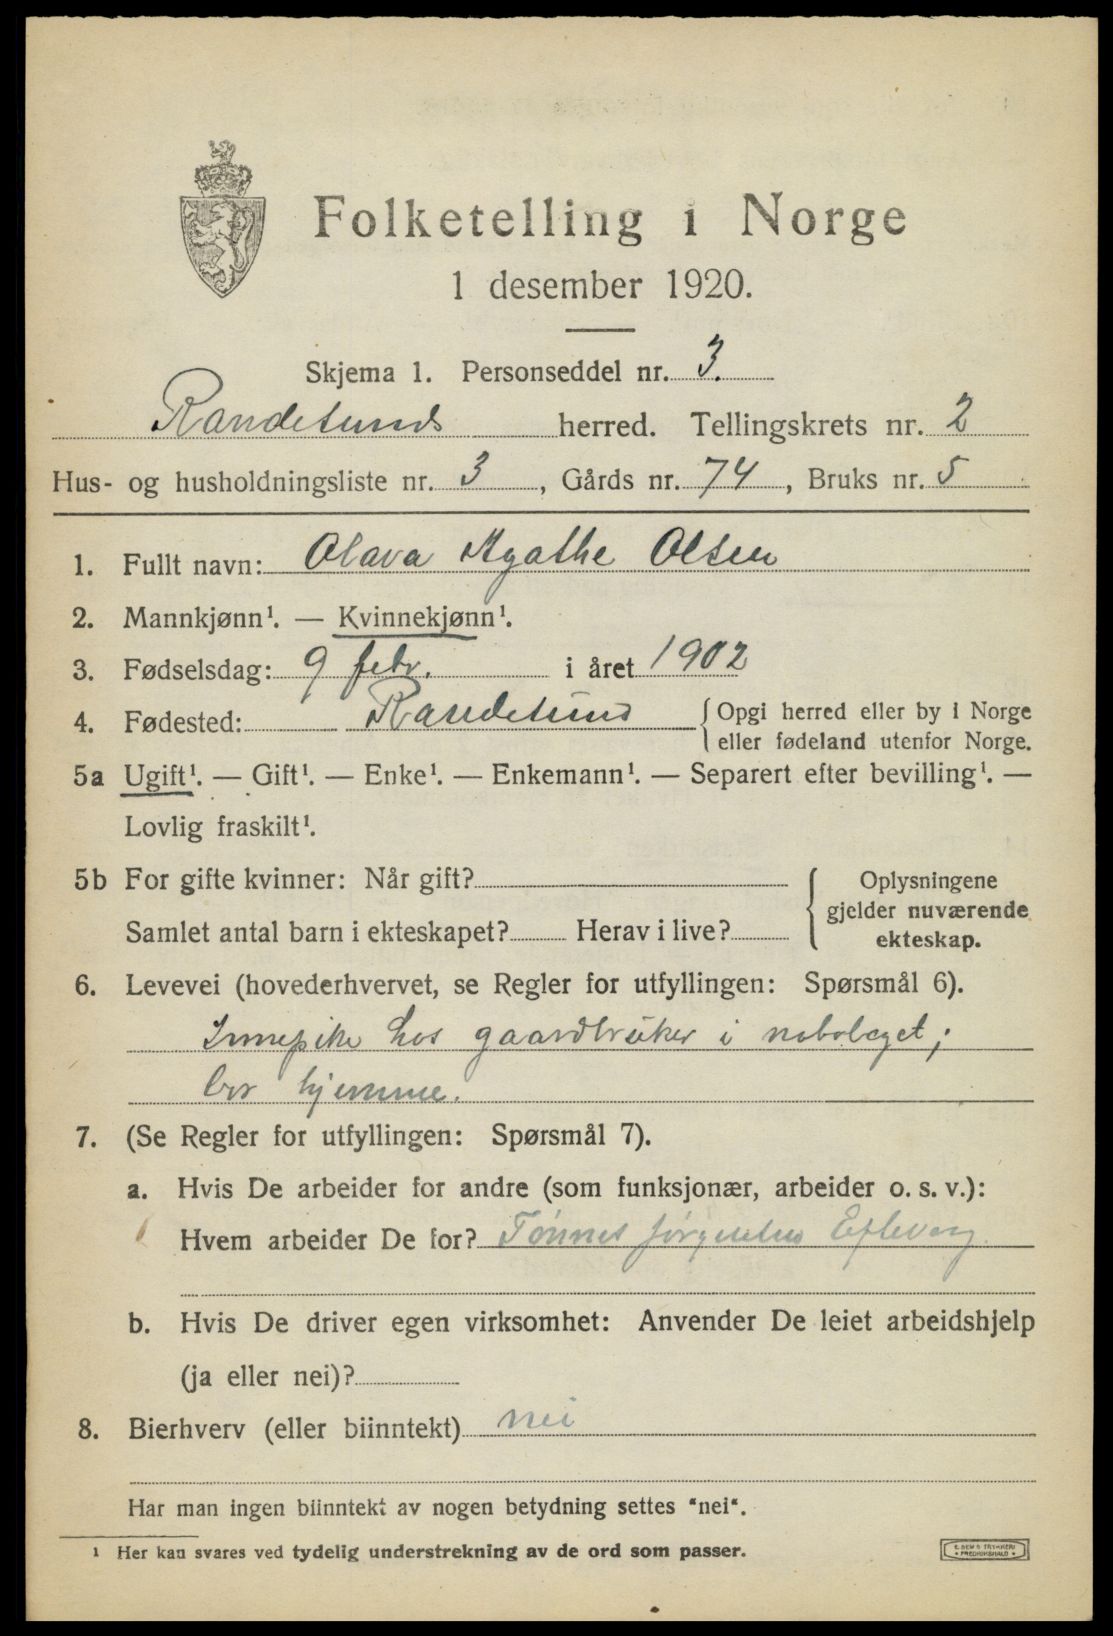 Folketelling i Norge
1 desember 1920.
Skjema 1. Personseddel nr. 3.
Randesunds herred. Tellingskrets nr. 2
Hus- og husholdningsliste nr. 3, Gårds nr. 74, Bruks nr. 5
1. Fullt navn: Olava Agathe Olsen
2. Mannkjønn¹. — Kvinnekjønn¹.
3. Fødselsdag: 9 febr. i året 1902
4. Fødested: Randesund { Opgi herred eller by i Norge
eller fødeland utenfor Norge.
5a Ugift¹. — Gift¹. — Enke¹. — Enkemann¹. — Separert efter bevilling¹. —
Lovlig fraskilt¹.
5b For gifte kvinner: Når gift? { Oplysningene
gjelder nuværende
Samlet antal barn i ekteskapet? Herav i live? ekteskap.
6. Levevei (hovederhvervet, se Regler for utfyllingen: Spørsmål 6).
Innepike hos gaardbruker i nabolaget;
bor hjemme.
7. (Se Regler for utfyllingen: Spørsmål 7).
a. Hvis De arbeider for andre (som funksjonær, arbeider o. s. v.):
Hvem arbeider De for? Tønnes Jørgensen
b. Hvis De driver egen virksomhet: Anvender De leiet arbeidshjelp
(ja eller nei)?
8. Bierhverv (eller biinntekt) nei
Har man ingen biinntekt av nogen betydning settes "nei".
¹ Her kan svares ved tydelig understrekning av de ord som passer.
E. SEM'S TRYKKERI
• FREDRIKSHALD •